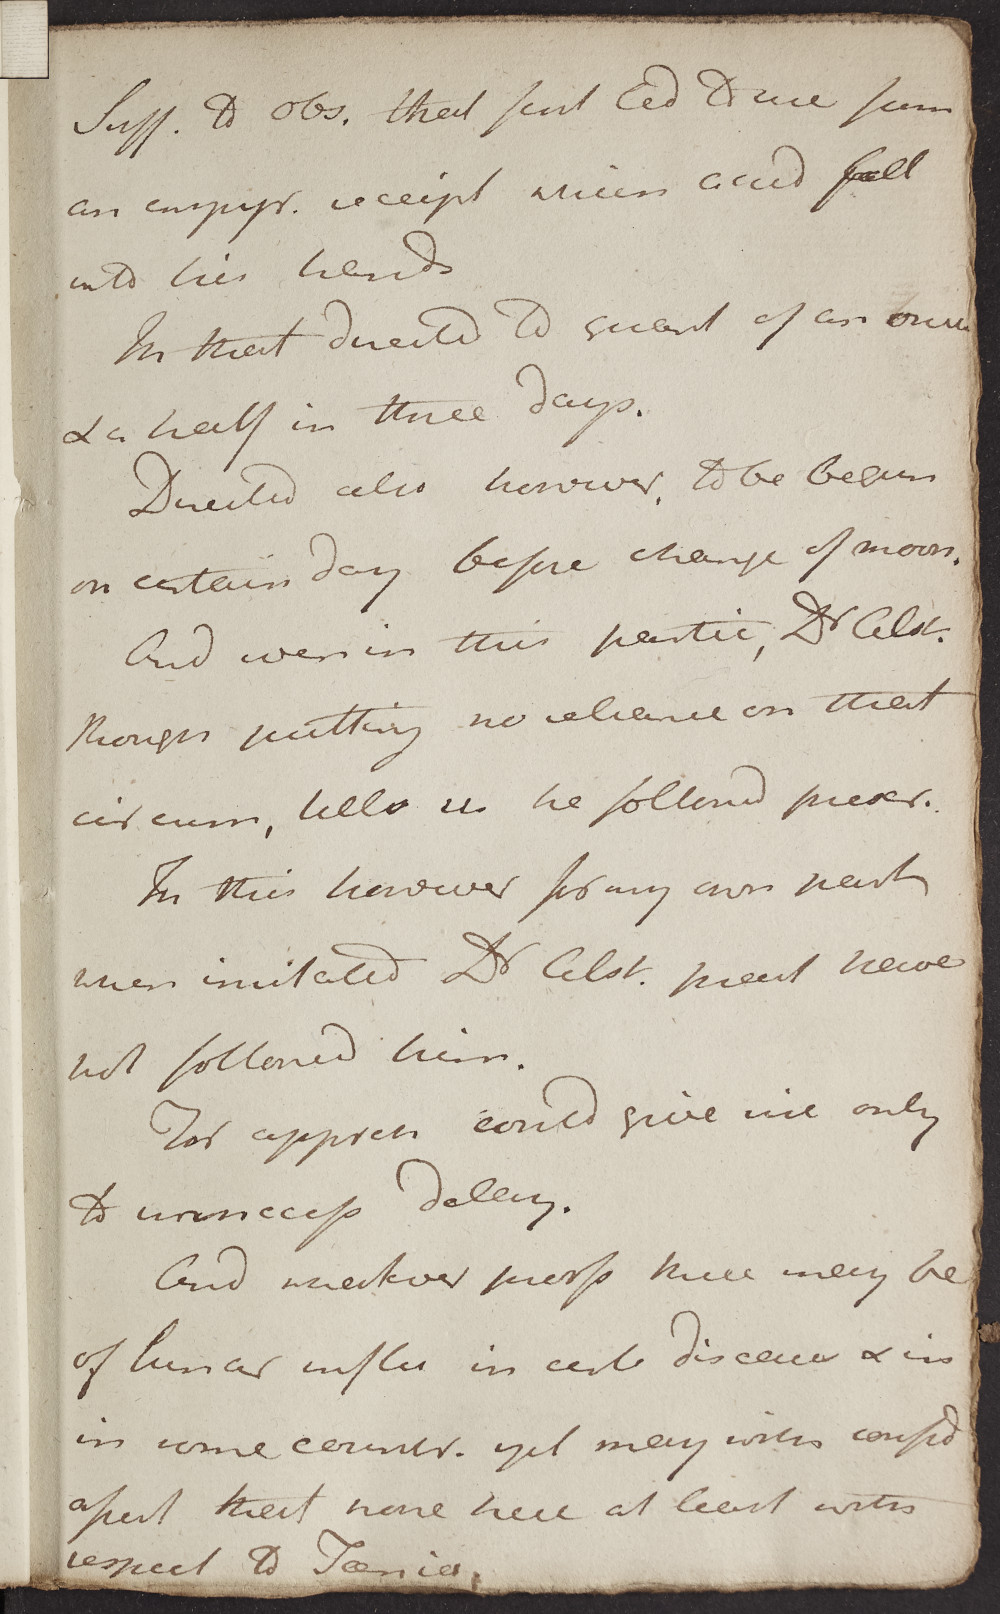 Suff. to obs. that first led to use from
an empyr. receipt which accid fell
into his hands
In that directed to quant of an ounce
& a half in three days.
Directed also however, to be begun
on certain day before change of moon.
And even in this partic, Dr Alst.
though putting no reliance on that
circum, tells us he followd prescr.
In this however for my own part
when imitated Dr Alst. pract have
not followed him.
For appreh could give rise only
to unnecess delay.
And whatever proofs there may be
of lunar influ in cert diseases & in
in some countr. yet may with confid
assert that none here at least with
respect to Tænia.